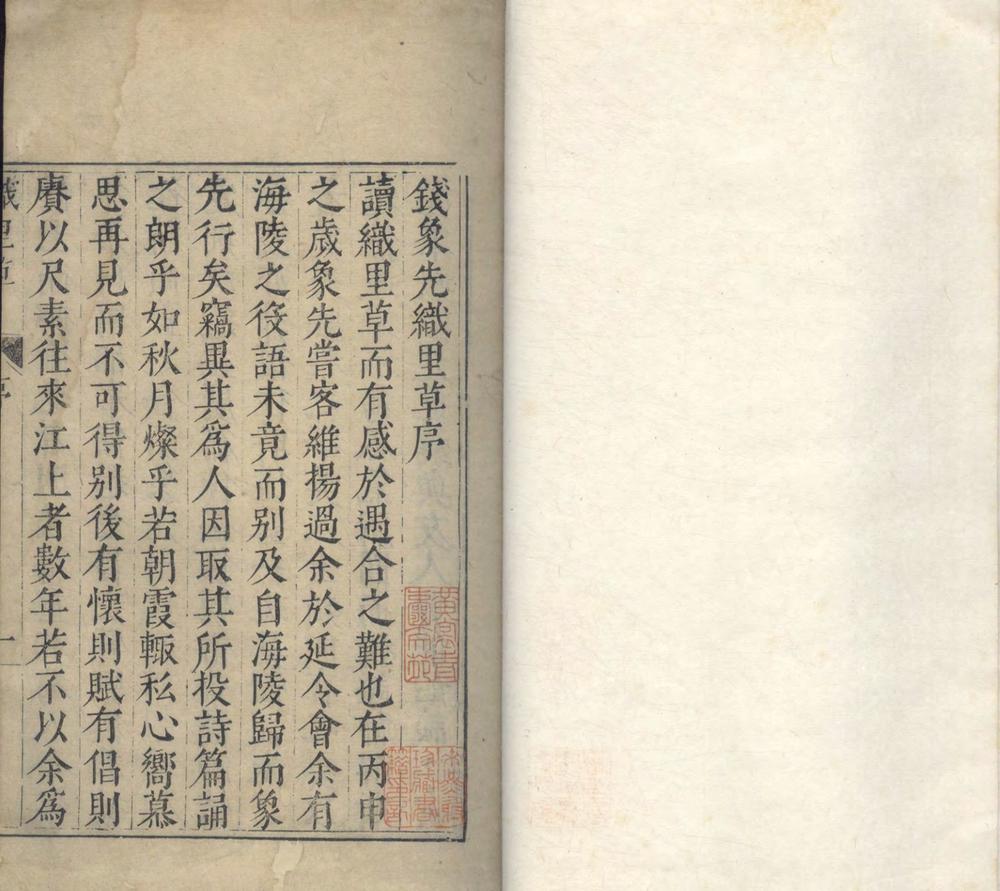 錢象先織里草序
讀織里草而有感於遇合之難也在丙申
之歲象先嘗客維揚過余於延令會余有
海陵之役語未竟而別及自海陵歸而象
先行矣竊異其爲人因取其所投詩篇誦
之朗乎如秋月燦乎若朝霞輙私心嚮慕
思再見而不可得別後有懷則賦有倡則
賡以尺素往來江上者數年若不以余爲
織里草
序
一